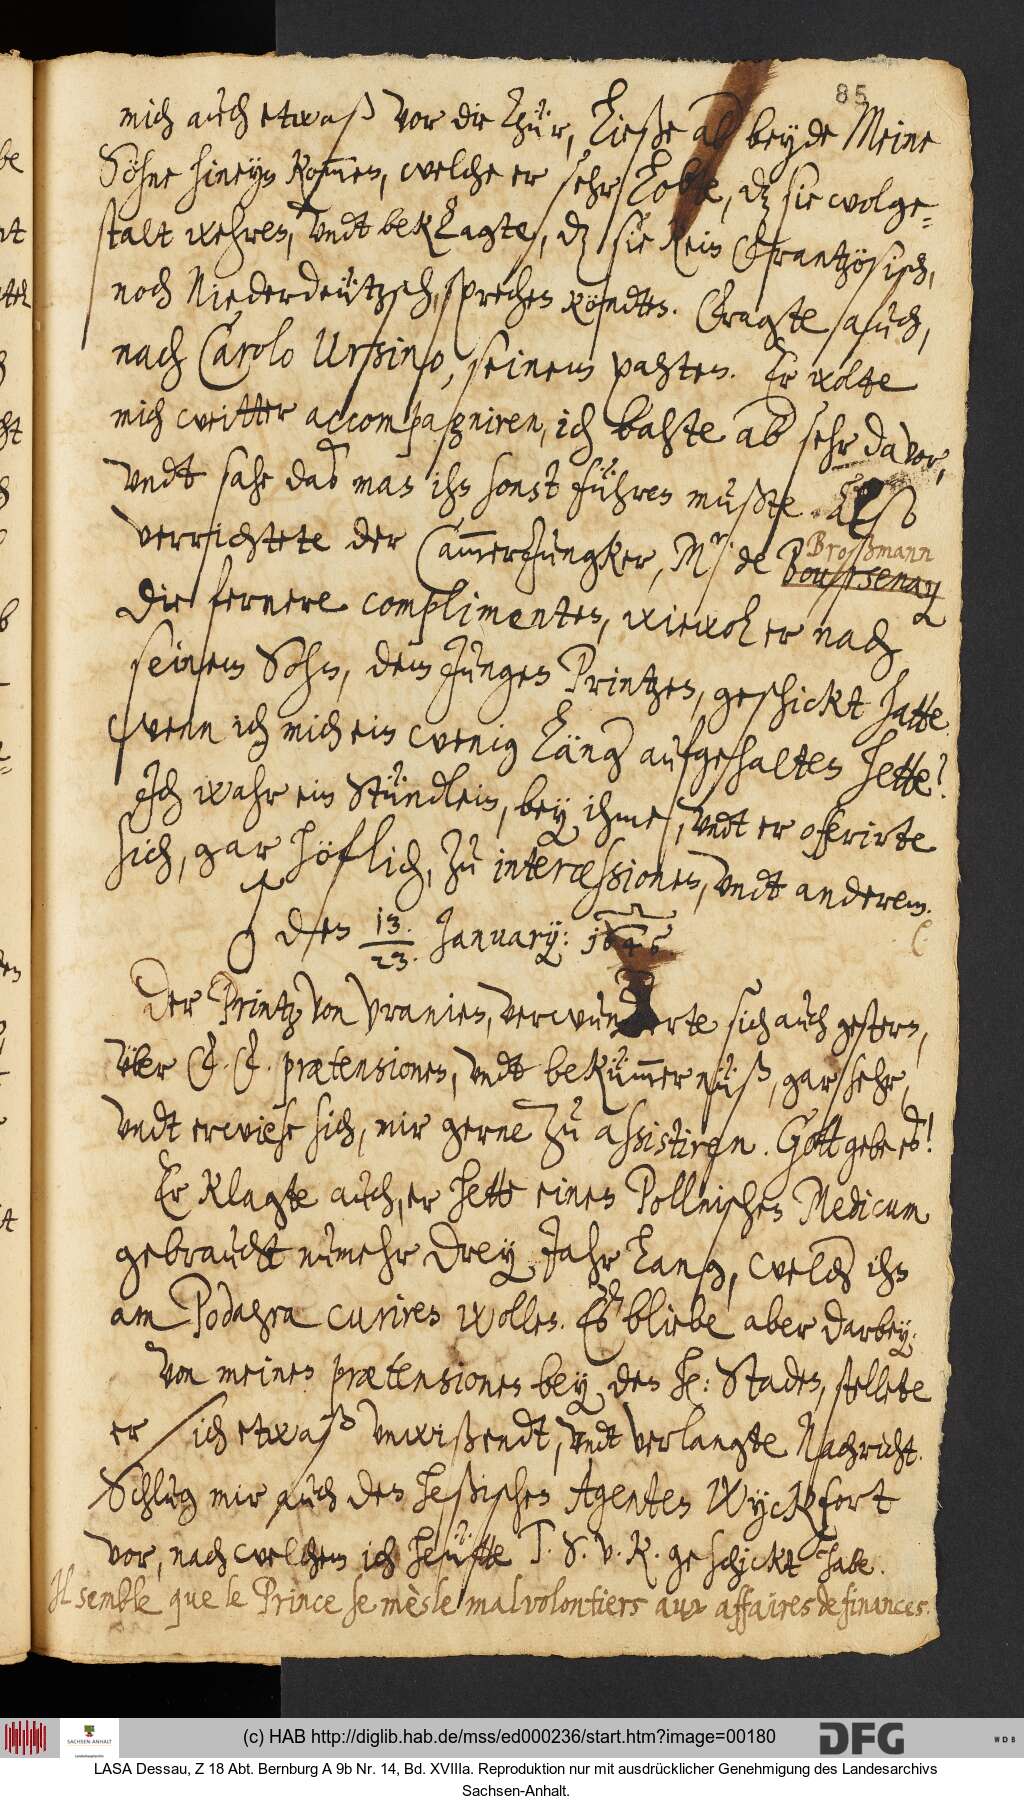 85
mich auch etwaß vor die Thür, ließe ab beyde Meine
Söhne hineyn kommen, welche er sehr lobte, dz sie wolge=
stalt wehren, vndt beklagte, dz sie kein Frantzösisch,
noch Niederdeützsch, sprechen köndten. Fragte auch,
nach Carolo Ursino, seinem pahten. Er wolte
mich weitter accompagniren, ich bahte ab sehr davor,
vndt sahe das man ihn sonst führen mußte. Also
verrichtete der CammerJungker, Mr. de Boussenay
Broßmann
die fernere complimenten, wiewol er nach
seinem Sohn, dem Jungen Printzen, geschickt hatte.
wenn ich mich ein wenig läng aufgehalten hette?
Ich wahr ein Stündlein, bey ihme, vndt er offerirte
sich, gar höflich, zu intercessionen, vndt anderem.
♂ den 13./23. January: 1645
Der Printz von Vranien, verwunderte sich auch gestern,
über F. F. prætensionen, vndt bekümmernüß, gar sehr,
vndt erwiese sich, mir gerne zu assistiren. Gott gebe es!
Er klagte auch, er hette einen Pollnischen Medicum
gebraucht numehr drey Jahr lang, welcher ihn
am Podagra curiren wollen. Es bliebe aber darbey.
Von meinen prætensionen bey den H: Staden, stellete
er sich etwaß vnwißendt, vndt verlangte Nachricht.
Schlug mir auch den Heßischen Agenten Wyckfort
vor, nach welchem ich heütte T. S. v. R. geschickt habe.
Il semble que le Prince se mèsle malvolontiers aux affaires de finances.
(c) HAB http://diglib.hab.de/mss/ed000236/start.htm?image=00180
SACHSEN-ANHALT
DFG
WDB
LASA Dessau, Z 18 Abt. Bernburg A 9b Nr. 14, Bd. XVIIIa. Reproduktion nur mit ausdrücklicher Genehmigung des Landesarchivs
Sachsen-Anhalt.